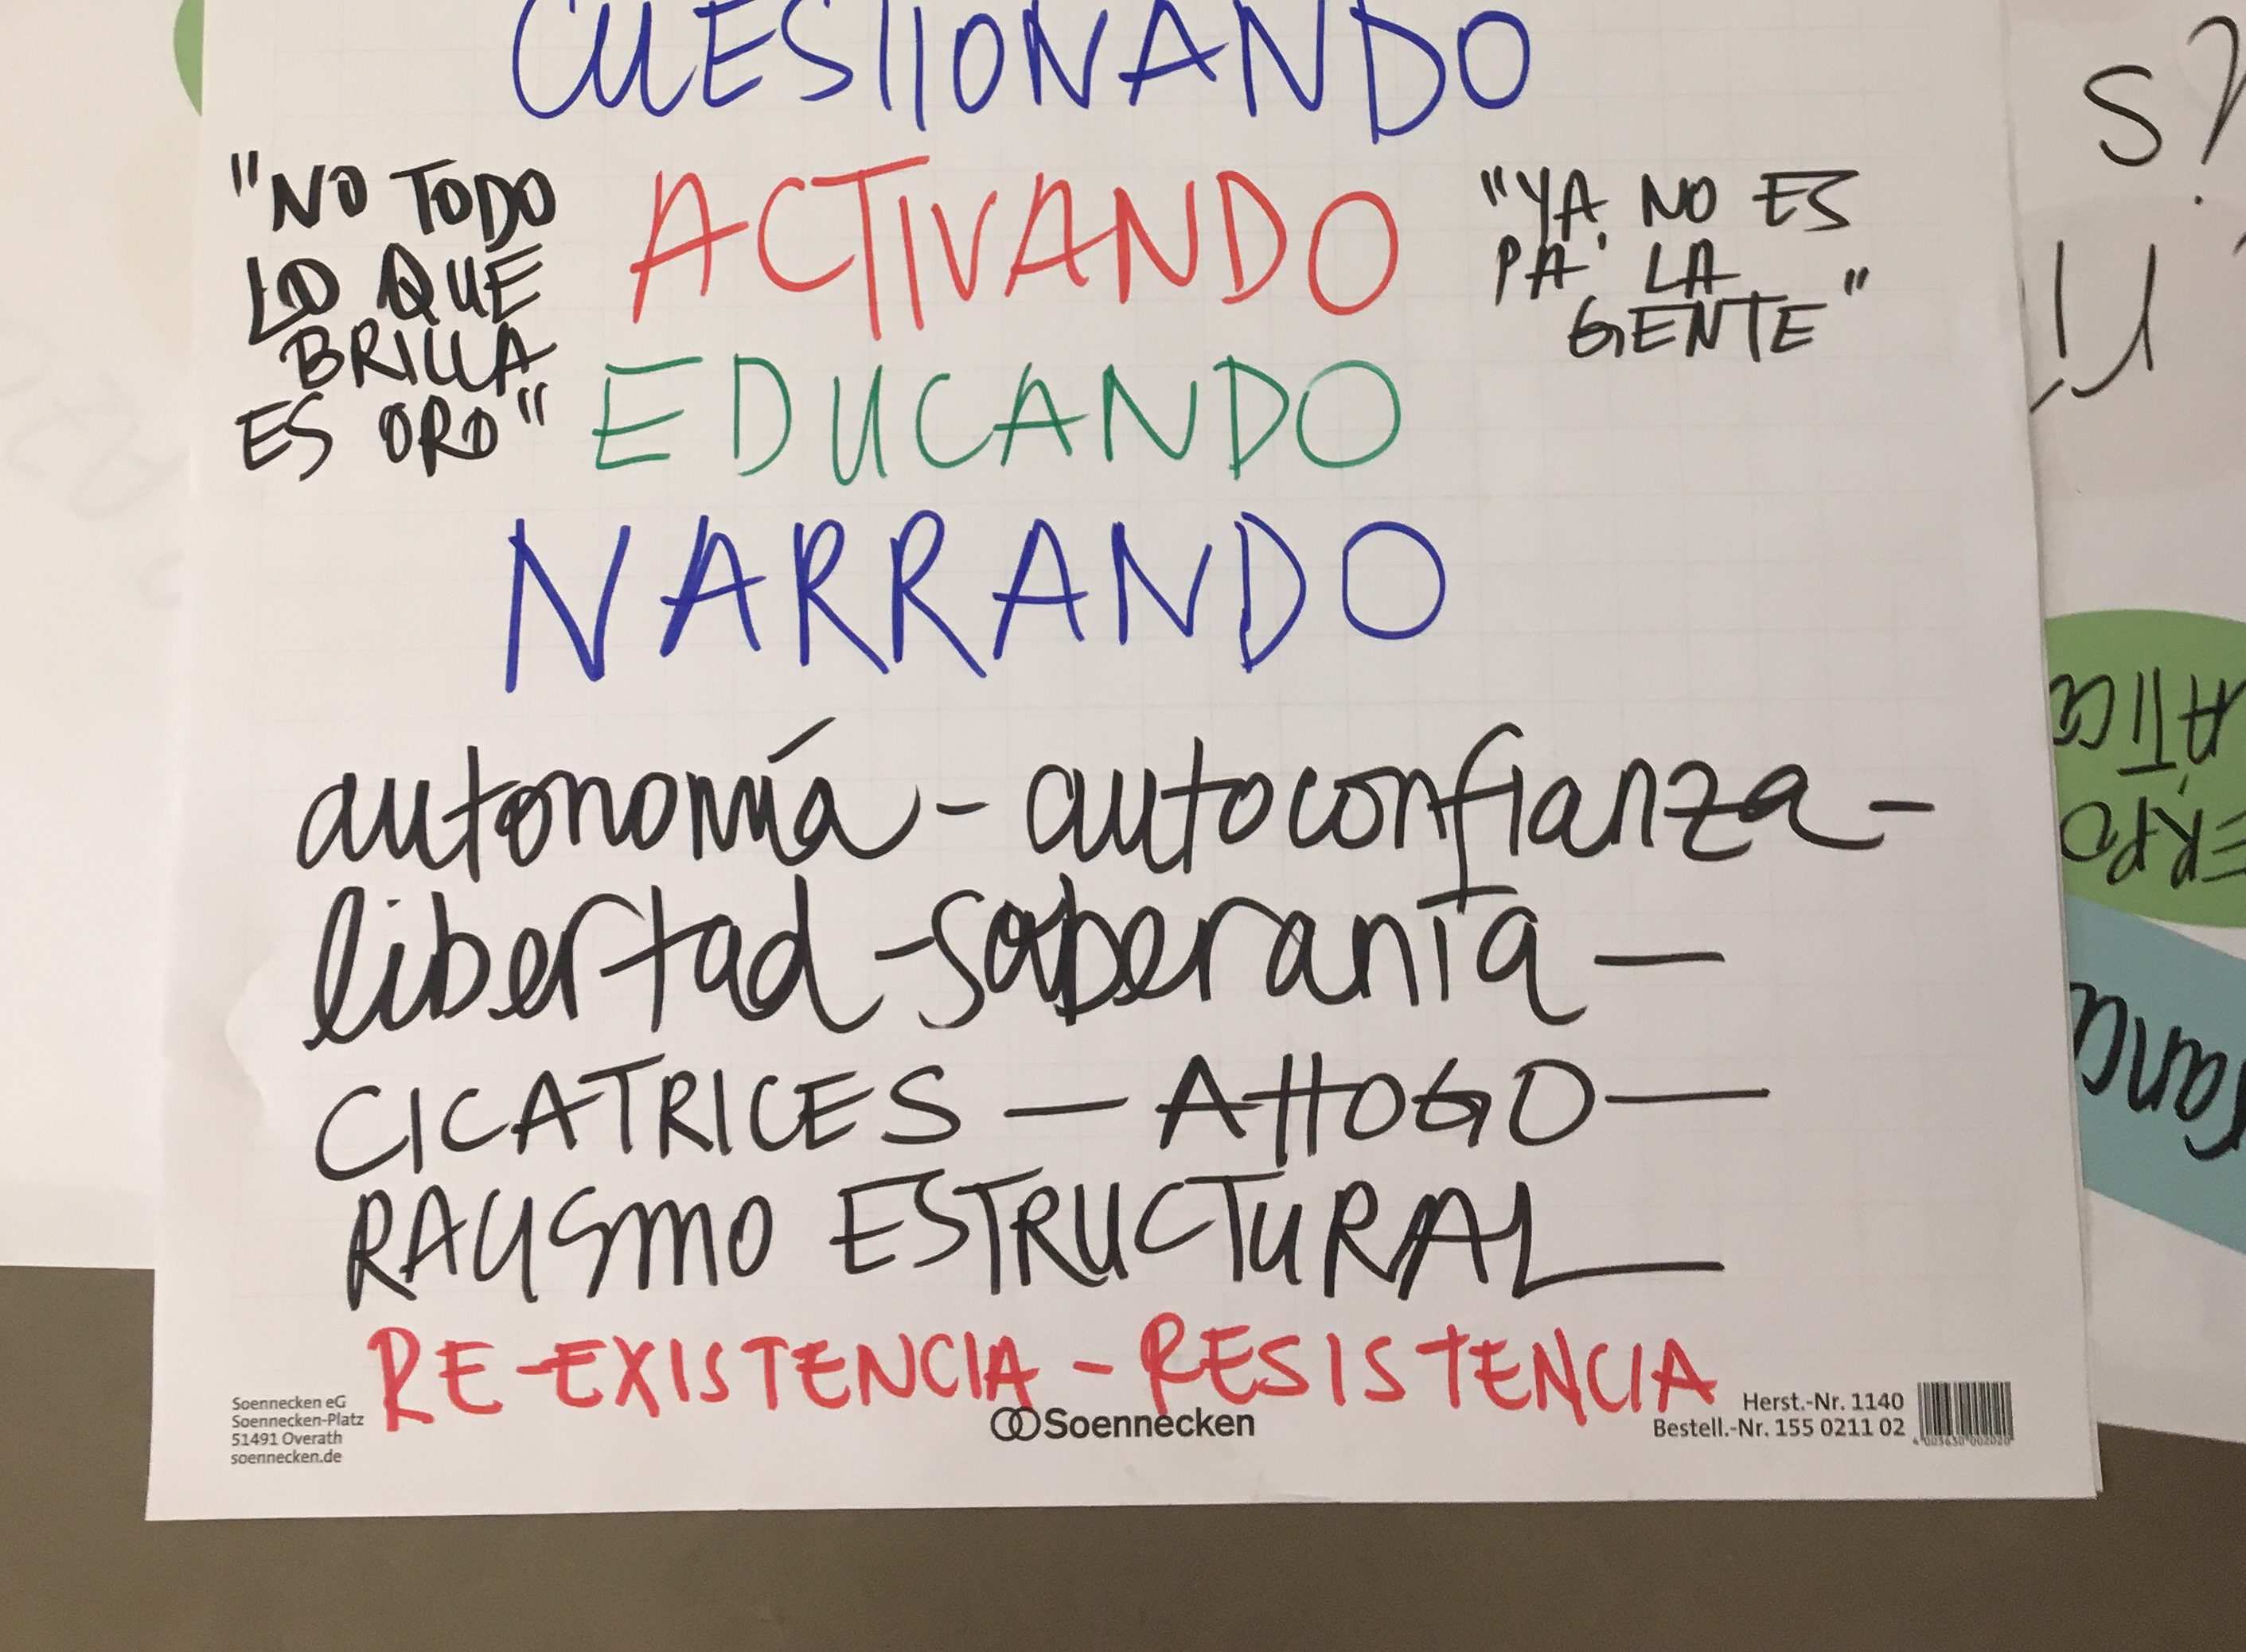 CUESTIONANDO
"NO TODO
LO QUE
BRILLA
ES ORO"
ACTIVANDO
"YA NO ES
PA' LA
GENTE"
EDUCANDO
NARRANDO
autonomía - autoconfianza -
libertad - soberanía -
CICATRICES - AHOGO -
RACISMO ESTRUCTURAL
RE-EXISTENCIA - RESISTENCIA
Soennecken eG
Soennecken-Platz
51491 Overath
soennecken.de
Soennecken
Herst.-Nr. 1140
Bestell.-Nr. 155 0211 02